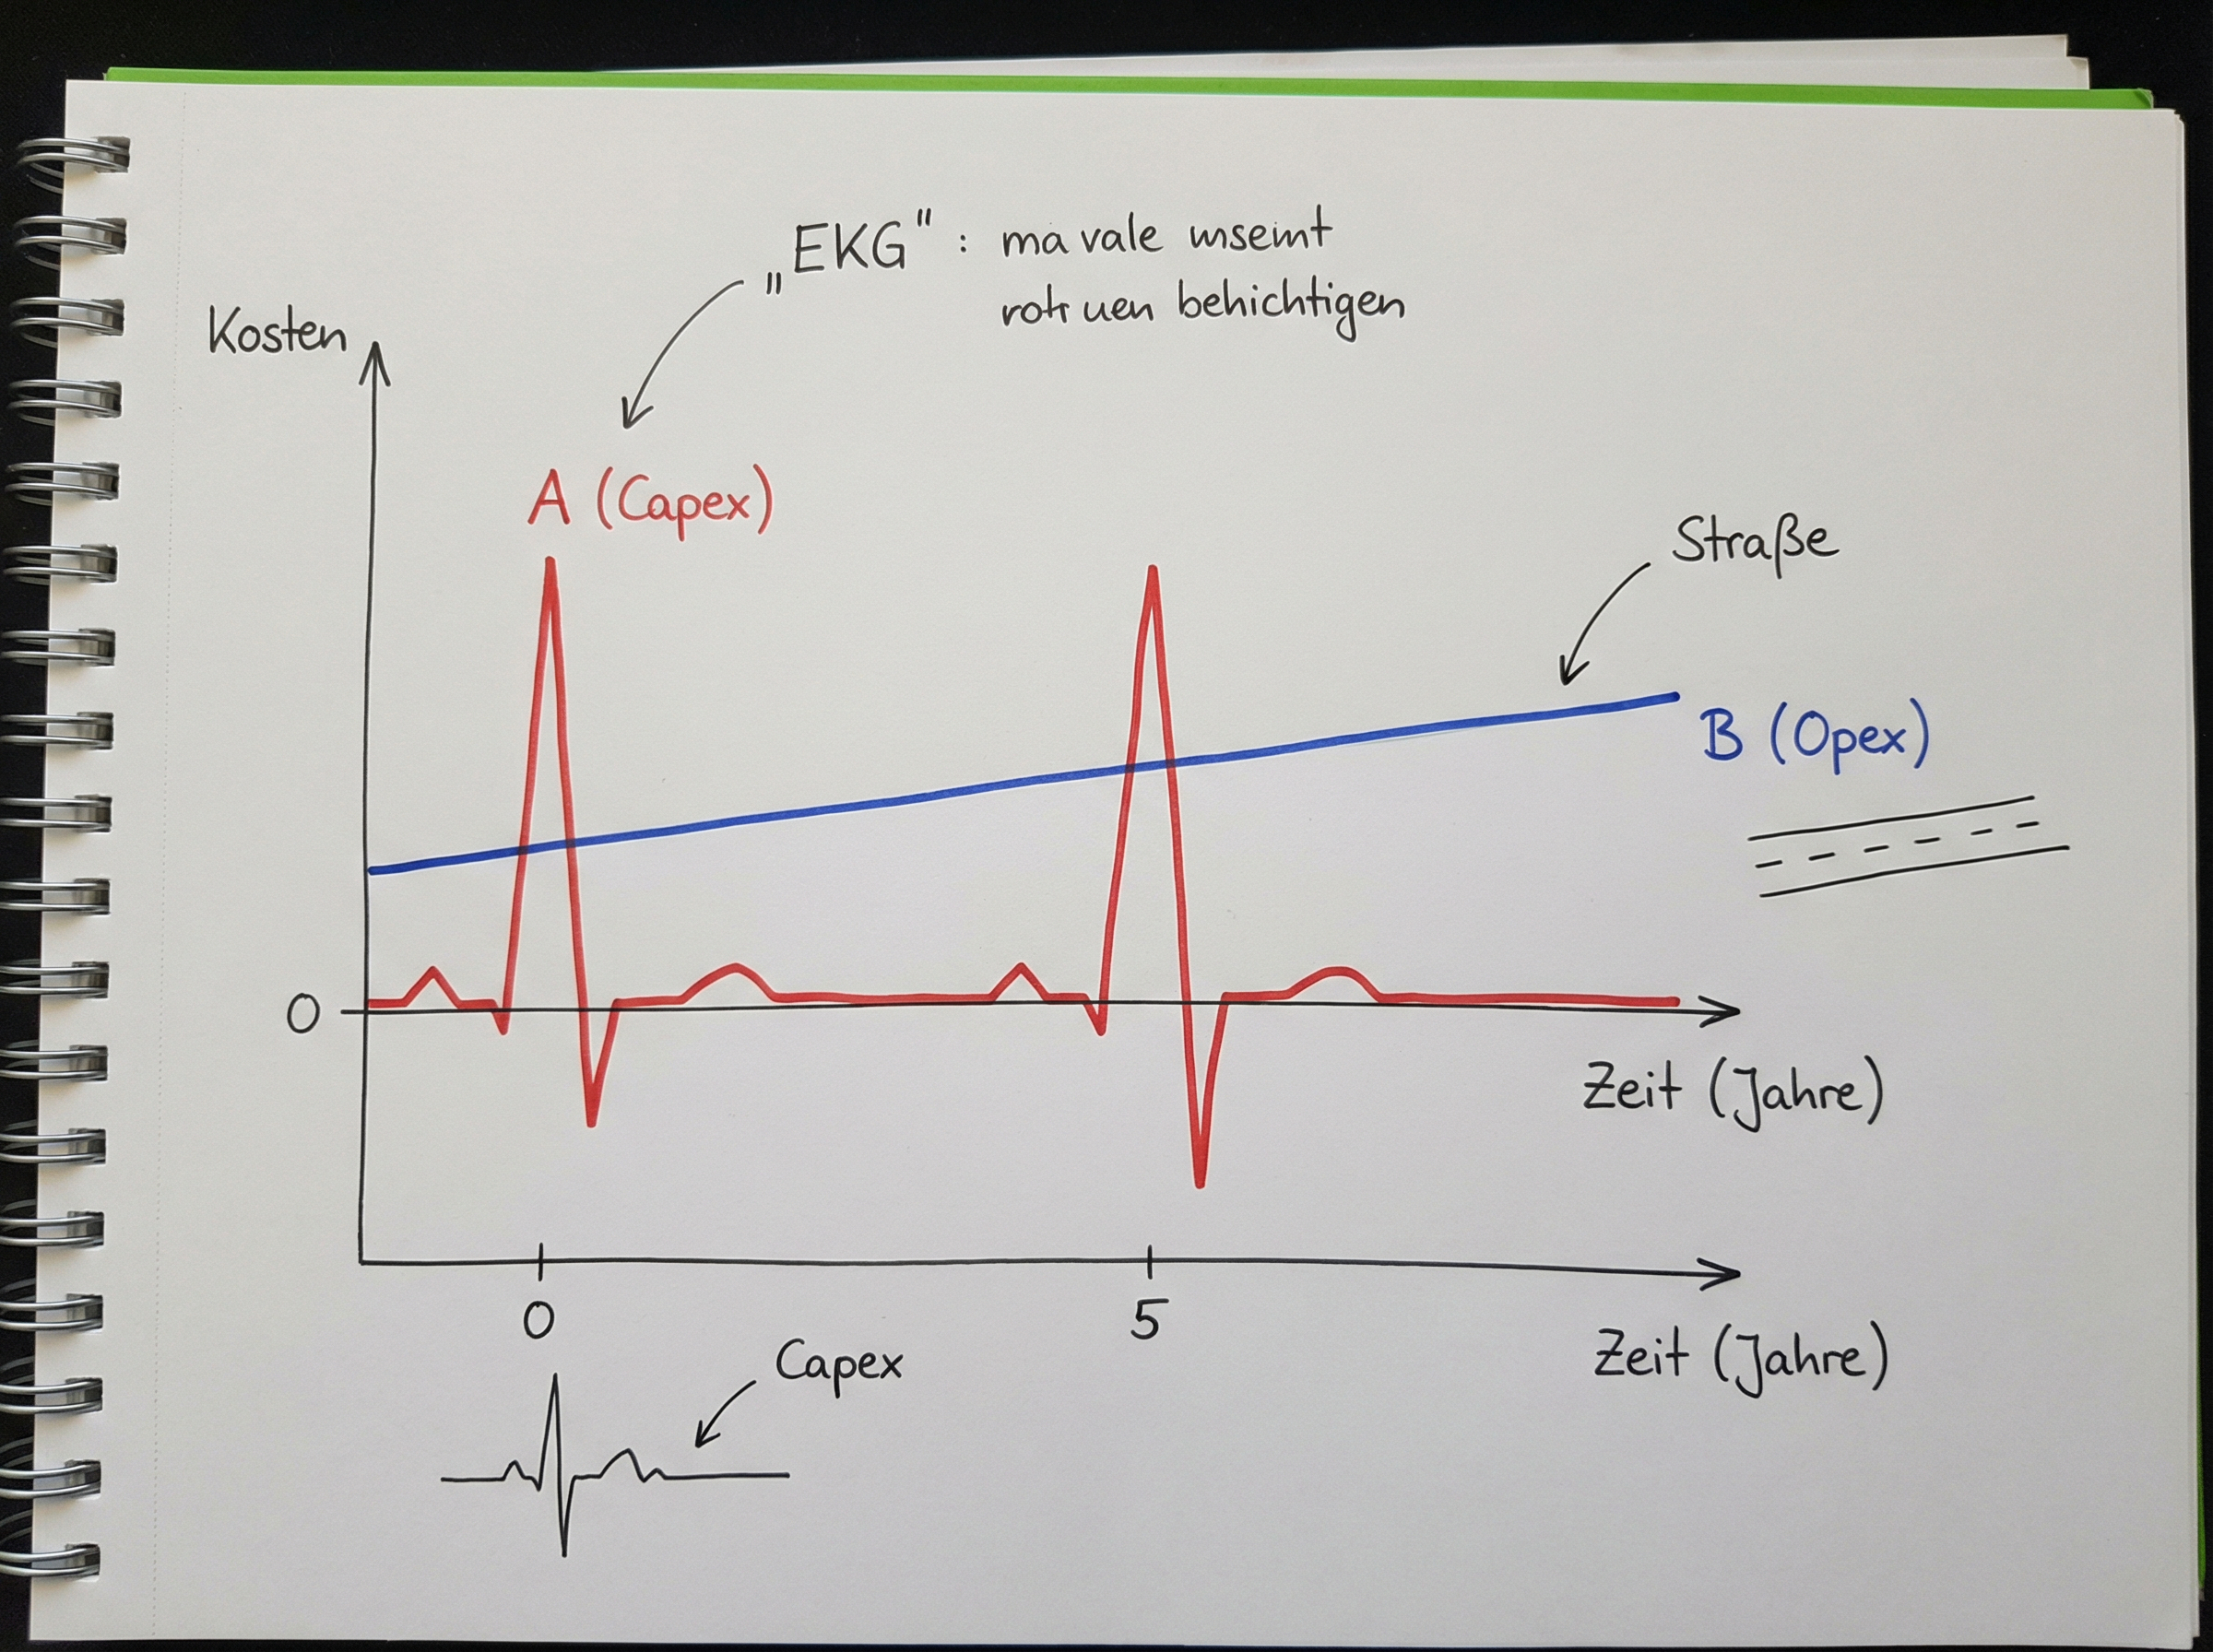 „EKG“ : ma vale unseint
rotr uen behichtigen
Kosten
A (Capex)
Straße
B (Opex)
0
Zeit (Jahre)
0
5
Zeit (Jahre)
Capex